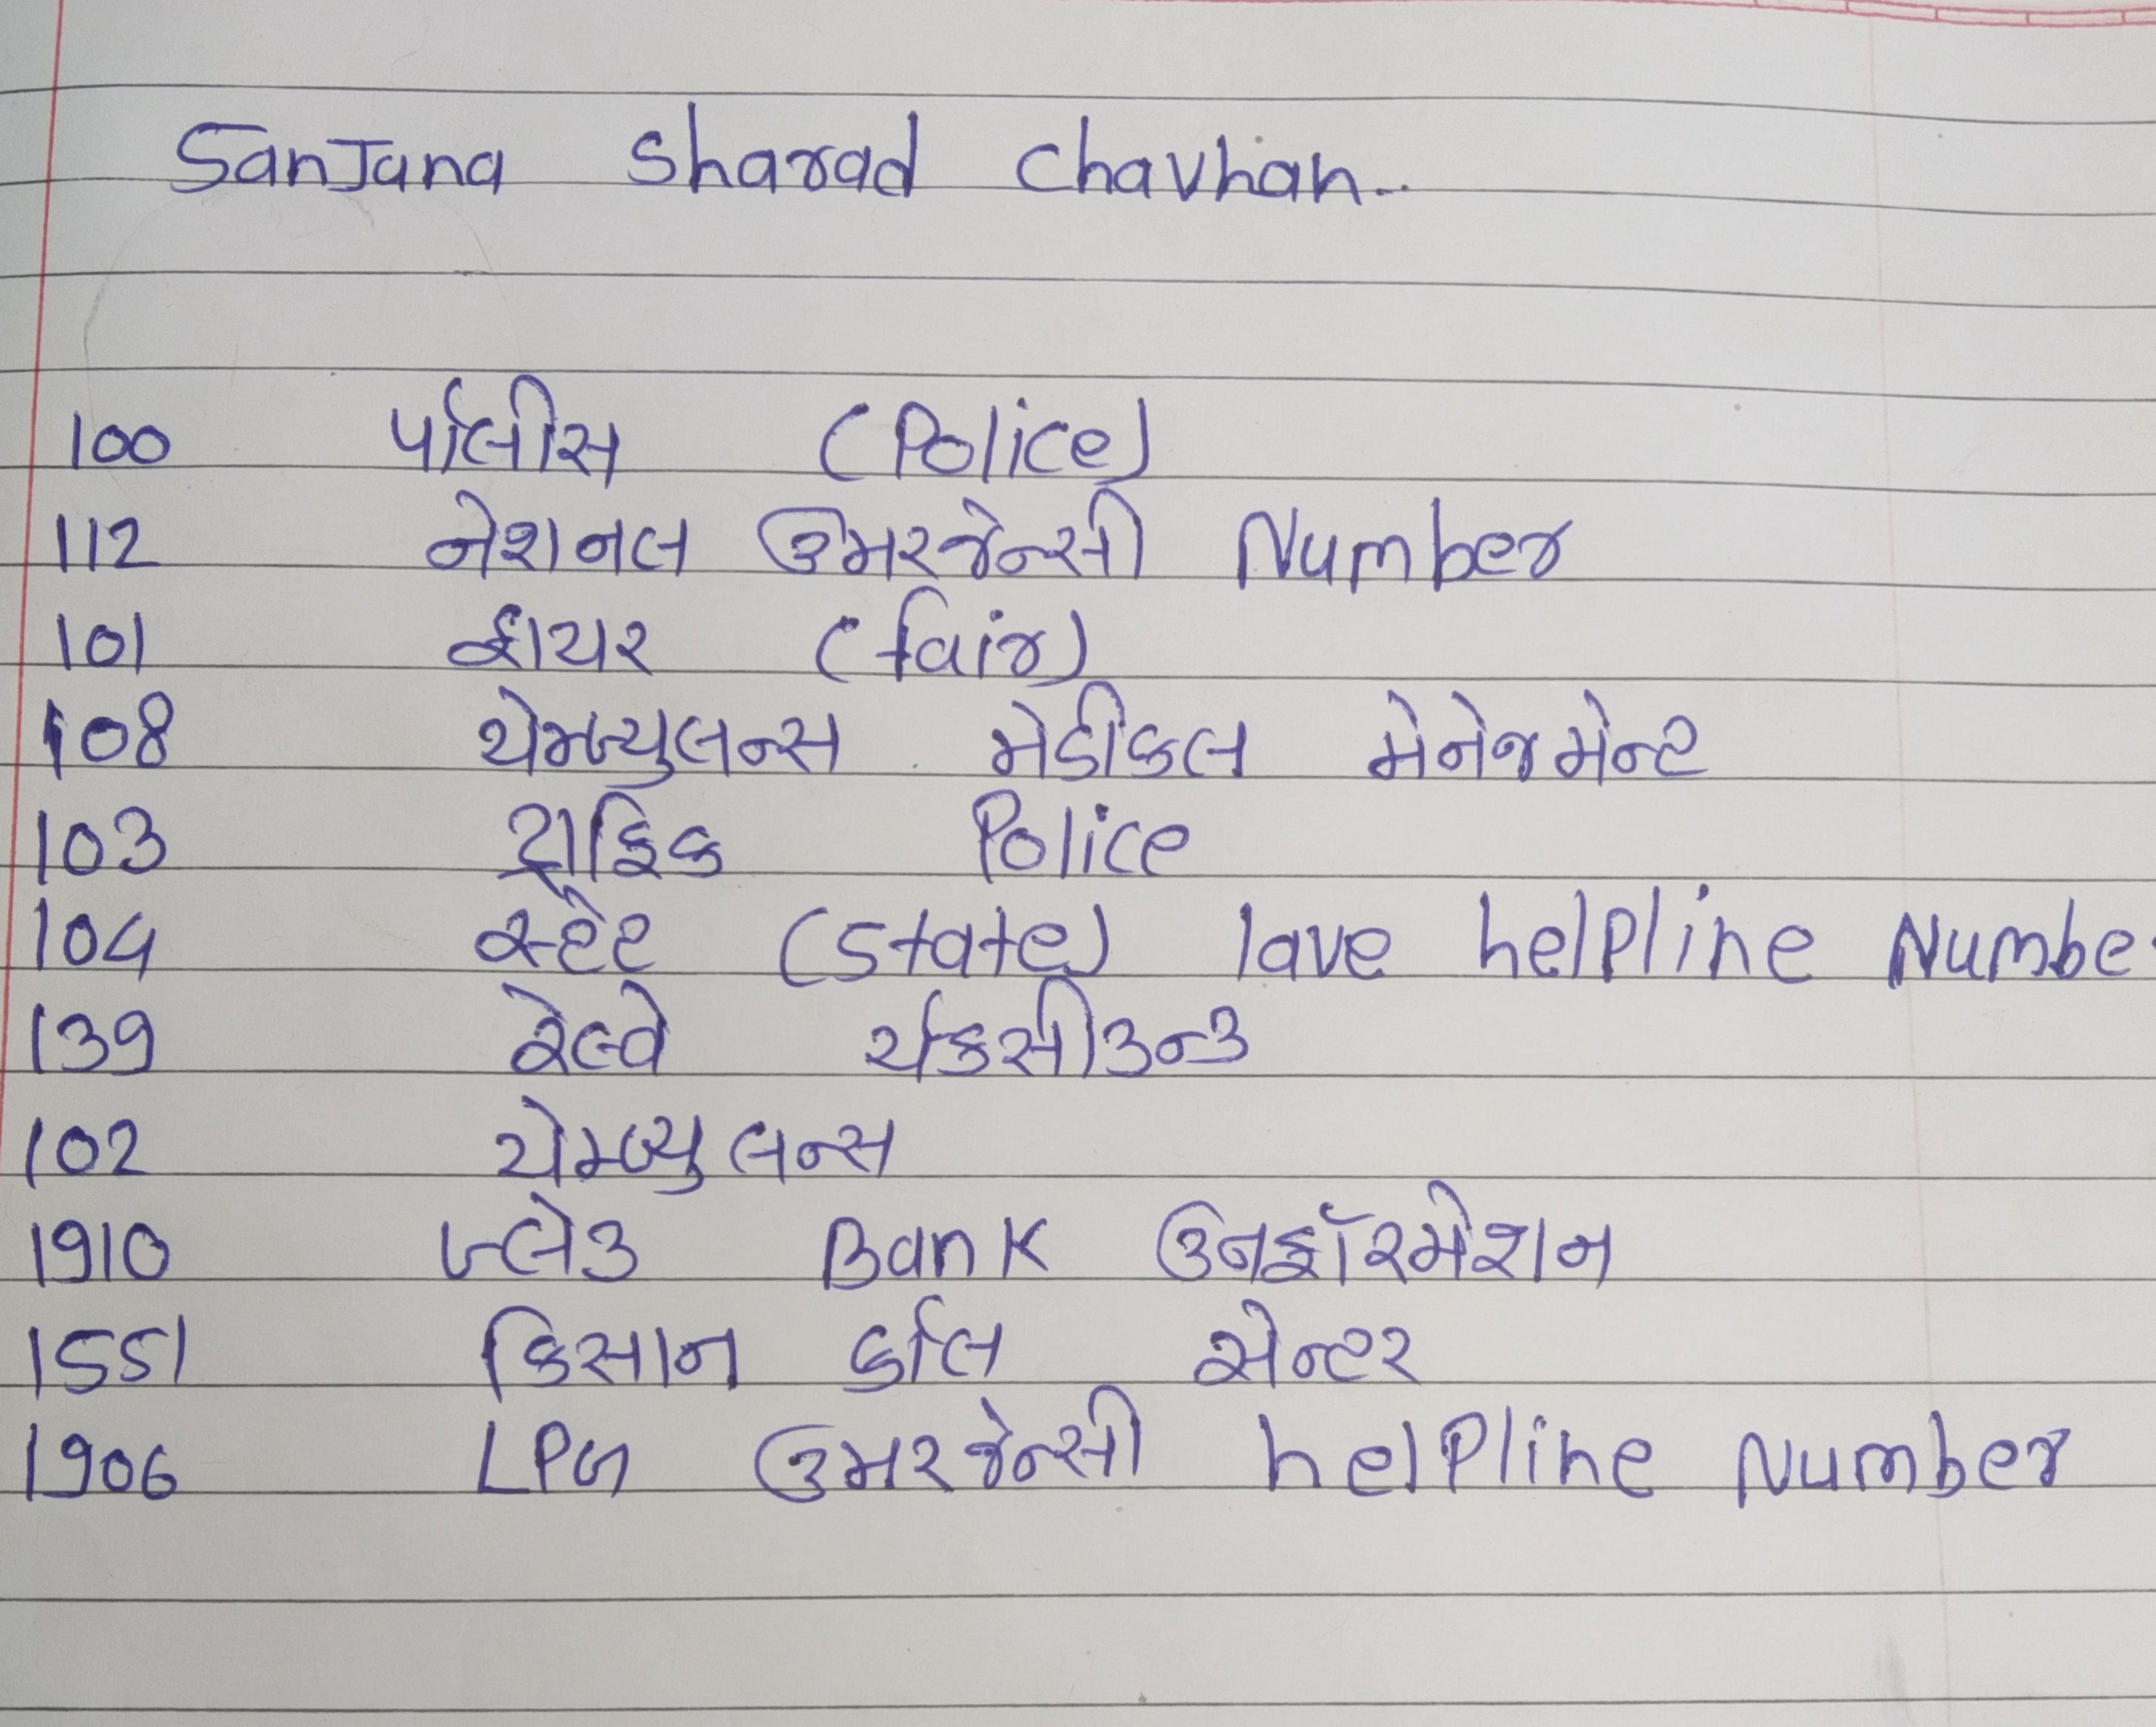 Sanjana Sharad Chavhan..
100 પોલીસ (Police)
112 નેશનલ ઇમરજેન્સી Number
101 ફાયર (fair)
108 યેમ્બ્યુલન્સ મેડીકલ મેનેજમેન્ટ
103 ટ્રાફિક Police
104 સ્ટેટ (state) lave helpline Numbe
139 રેલ્વે યેકસીડન્ડ
102 યેમ્બ્યુલન્સ
1910 બ્લેડ Bank ઇનફૉરમેશન
1551 કિસાન કોલ સેન્ટર
1906 LPG ઇમરજેન્સી helpline Number